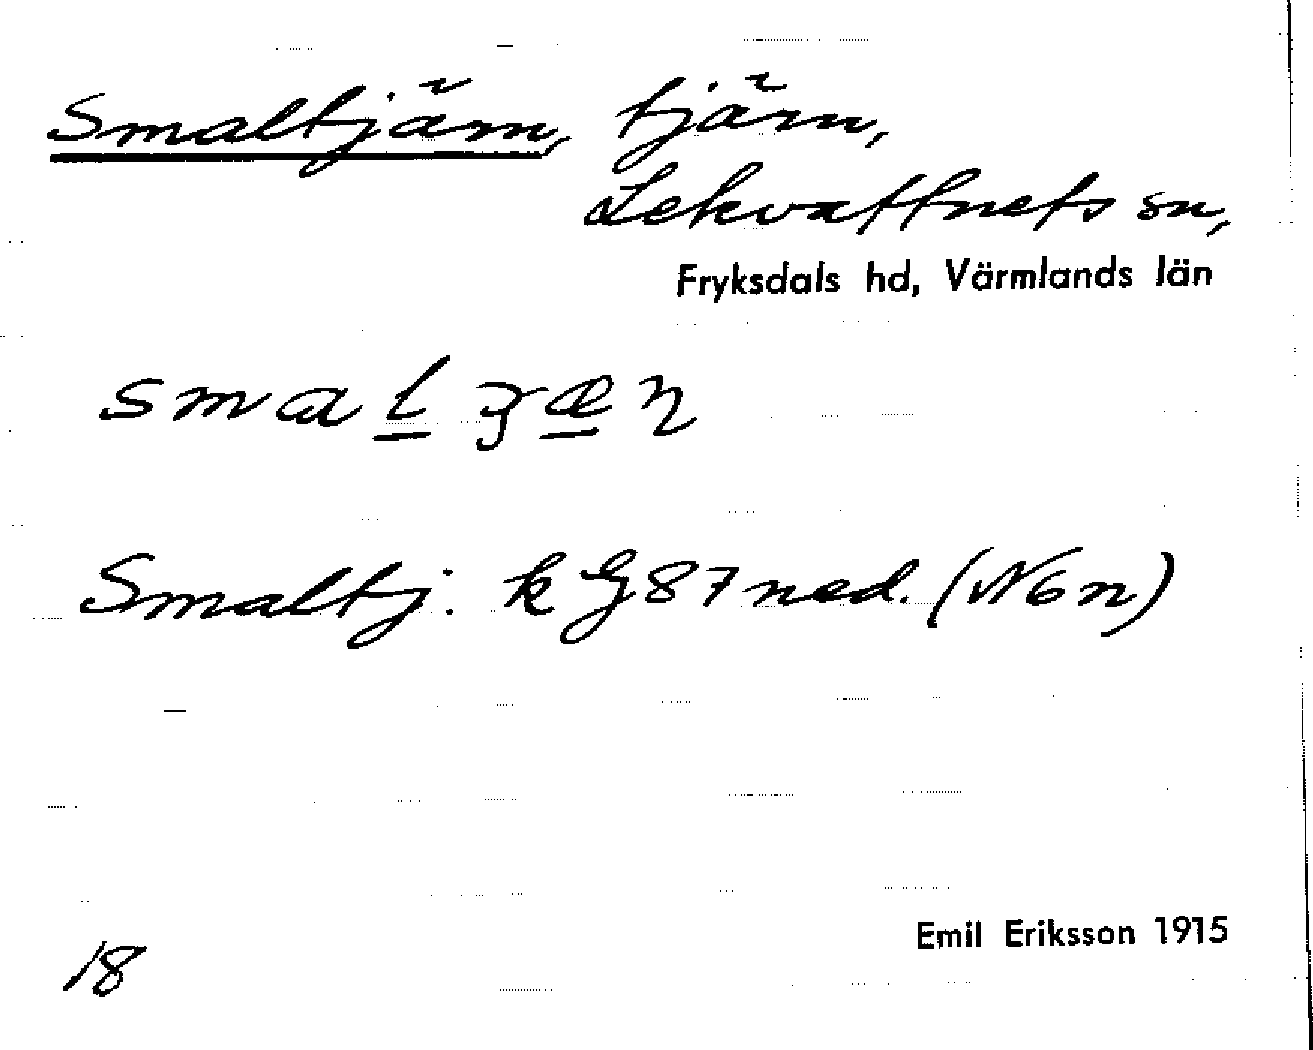 Smaltjärn, tjärn,
Lekvattnets sn,
Fryksdals hd, Värmlands län
smal̲ʒæ̲ɳ
Smaltj. k G87 ned. (N6n)
Emil Eriksson 1915
18